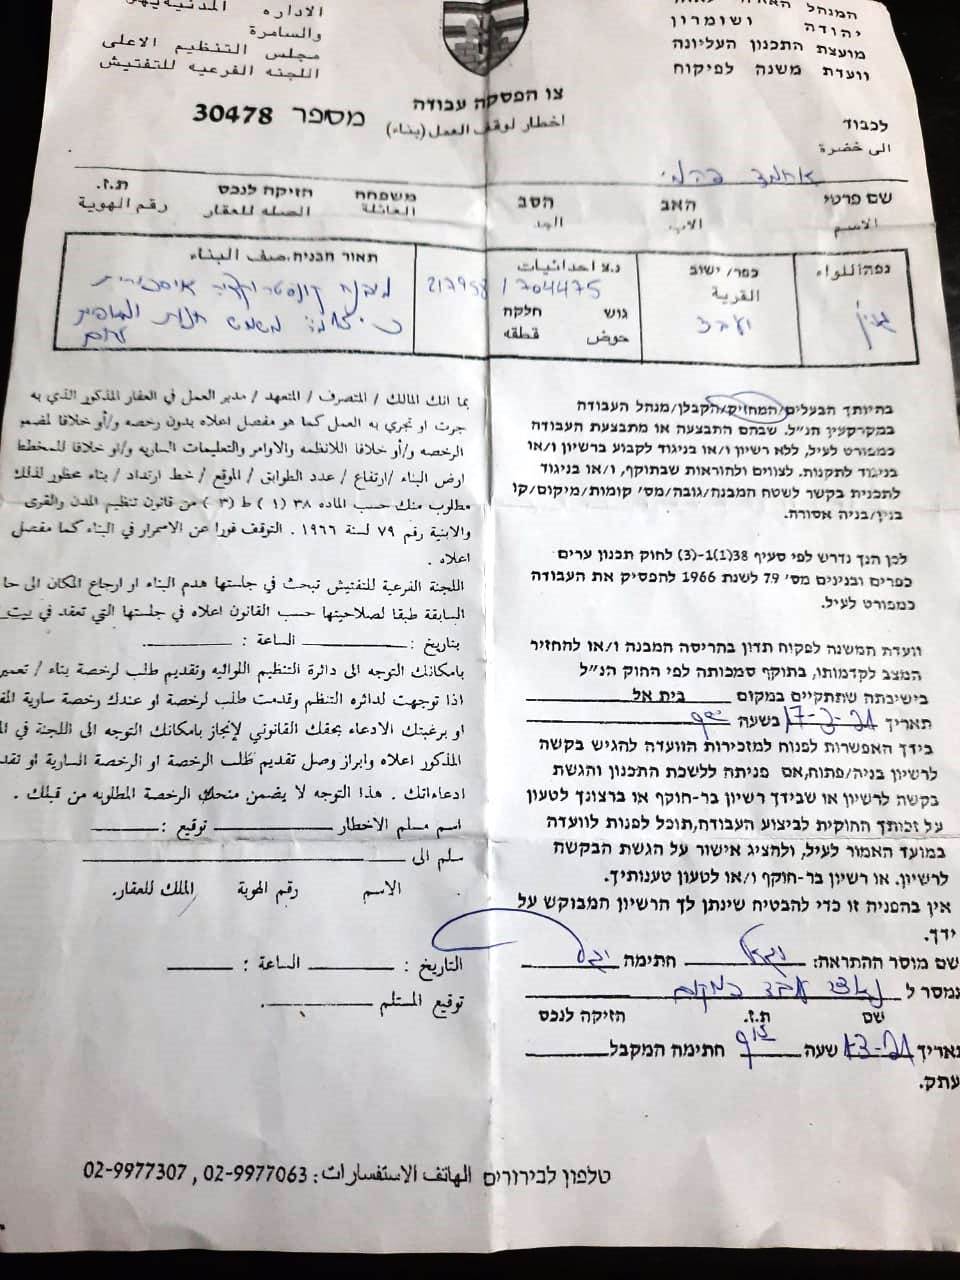 יהודה ושומרון
מועצת התכנון העליונה
וועדת משנה לפיקוח
الاداره المدنية
والسامرة
مجلس التنظيم الاعلى
اللجنه الفرعيه للتفتيش
צו הפסקה עבודה
מספר 30478
اخطار لوقف العمل (بناء)
לכבוד
الى حضرة
אחמד
שם פרטי האב הסב משפחה חזיקה לנכס ת.ז.
الاسم الاب الجد العائلة الصله للعقار رقم الهوية
נפה/اللواء כפר/ישוב נ.צ احداثيات תאור הבניה.صف البناء
القرية
ג'נין יעבד 217958 / 704475 מבנה קונסטרוקציה
גוש חלקה
حوض قطعه
משמש חנות
בהיותך הבעלים/המחזיק/הקבלן/מנהל העבודה
במקרקעין הנ"ל. שבהם התבצעה או מתבצעת העבודה
כמפורט לעיל, ללא רשיון ו/או בניגוד לקבוע ברשיון ו/או
בניגוד לתקנות. לצווים ולהוראות שבתוקף, ו/או בניגוד
לתכנית בקשר לשטח המבנה/גובה/מס' קומות/מיקום/קו
בנין/בניה אסורה.
לכן הנך נדרש לפי סעיף 38(1)-(3) לחוק תכנון ערים
כפרים ובנינים מס' 79 לשנת 1966 להפסיק את העבודה
כמפורט לעיל.
וועדת המשנה לפקוח תדון בהריסה המבנה ו/או להחזיר
המצב לקדמותו, בתוקף סמכותה לפי החוק הנ"ל
בישיבתה שתתקיים במקום בית אל
תאריך 17-3-21 בשעה
בידך האפשרות לפנות למזכירות הוועדה להגיש בקשה
לרשיון בניה/פתוח,אם פניתה ללשכת התכנון והגשת
בקשה לרשיון או שבידך רשיון בר-חוקף או ברצונך לטעון
על זכותך החוקית לביצוע העבודה,תוכל לפנות לוועדה
במועד האמור לעיל, ולהציג אישור על הגשת הבקשה
לרשיון. או רשיון בר-חוקף ו/או לטעון טענותיך.
אין בהפניה זו כדי להבטיח שינתן לך הרשיון המבוקש על
ידך.
שם מוסר ההתראה: חתימה
נמסר ל במקום
שם ת.ז. הזיקה לנכס
תאריך שעה חתימה המקבל
עתק.
بما انك المالك / المتصرف / المتعهد / مدير العمل في العقار المذكور الذي به
جرت او تجري به العمل كما هو مفصل اعلاه بدون رخصه و/أو خلافا لمضمو
الرخصه و/أو خلافا للانظمه والاوامر والتعليمات الساريه و/أو خلافا للمخطط
ارض البناء / ارتفاع / عدد الطوابق / الموقع / خط ارتداد / بناء محظور لذلك
مطلوب منك حسب الماده ٣٨ (١) ط (٣) من قانون تنظيم المدن والقرى
والابنية رقم ٧٩ لسنة ١٩٦٦ . التوقف فورا عن الاسمرار في البناء كما مفصل
اعلاه .
اللجنة الفرعية للتفتيش تبحث في جلستها هدم البناء او ارجاع المكان الى حا
السابقة طبقا لصلاحيتها حسب القانون اعلاه في جلستها التي تعقد في بيت
بتاريخ : الساعة :
بامكانك التوجه الى دائرة التنظيم اللوائيه وتقديم طلب لرخصة بناء / تعمير
اذا توجهت لدائره التنظم وقدمت طلب لرخصة او عندك رخصة سارية المف
او برغبتك الادعاء بحقك القانوني لإنجاز بامكانك التوجه الى اللجنة في الم
المذكور اعلاه وابراز وصل تقديم طلب الرخصة او الرخصة السارية او تقد
ادعاءاتك . هذا التوجه لا يضمن منحك الرخصة المطلوبه من قبلك .
اسم مسلم الاخطار توقيع :
سلم الى
الاسم رقم الهوية الملك للعقار.
التاريخ : الساعة :
توقيع المستلم
טלפון לבירורים الهاتف الاستفسارات: 02-9977063 , 02-9977307